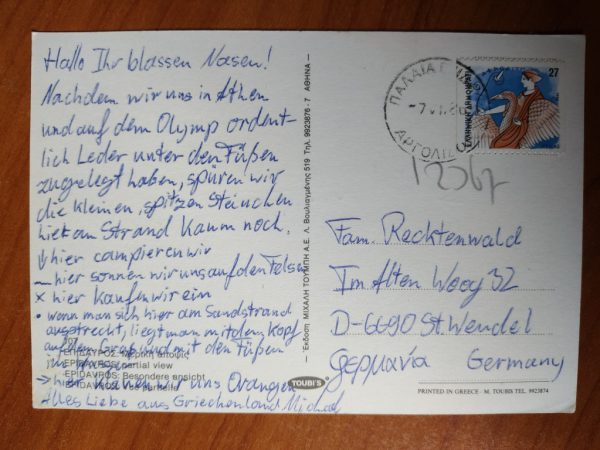 Hallo Ihr blassen Nasen!
Nachdem wir uns in Athen
und auf dem Olymp ordent-
lich Leder unter den Füßen
zugelegt haben, spüren wir
die kleinen, spitzen Steinchen
hier am Strand kaum noch.
↓ hier campieren wir
— hier sonnen wir uns auf den Felsen
x hier kaufen wir ein
• wenn man sich hier am Sandstrand
ausstreckt, liegt man mit dem Kopf
auf dem Grab und mit den Füßen
im
→ hier klauen wir uns Orangen
Alles Liebe aus Griechenland Michael
ΕΠΙΔΑΥΡΟΣ: Μερική άποψις
EPIDAVROS: Partial view
EPIDAVROS: Besondere ansicht
EPIDAVROS: Vue partielle
— Έκδοση ΜΙΧΑΛΗ ΤΟΥΜΠΗ Α.Ε. Λ. Βουλιαγμένης 519 Τηλ. 9923876-7 ΑΘΗΝΑ —
TOUBI'S
27
ΕΛΛΗΝΙΚΗ ΔΗΜΟΚΡΑΤΙΑ
ΠΑΛΑΙΑ
-7.VI.86
ΑΡΓΟΛΙΔΟΣ
12367
Fam. Recktenwald
Im Alten Woog 32
D-6690 St. Wendel
Γερμανία Germany
PRINTED IN GREECE - M. TOUBIS TEL. 9923874